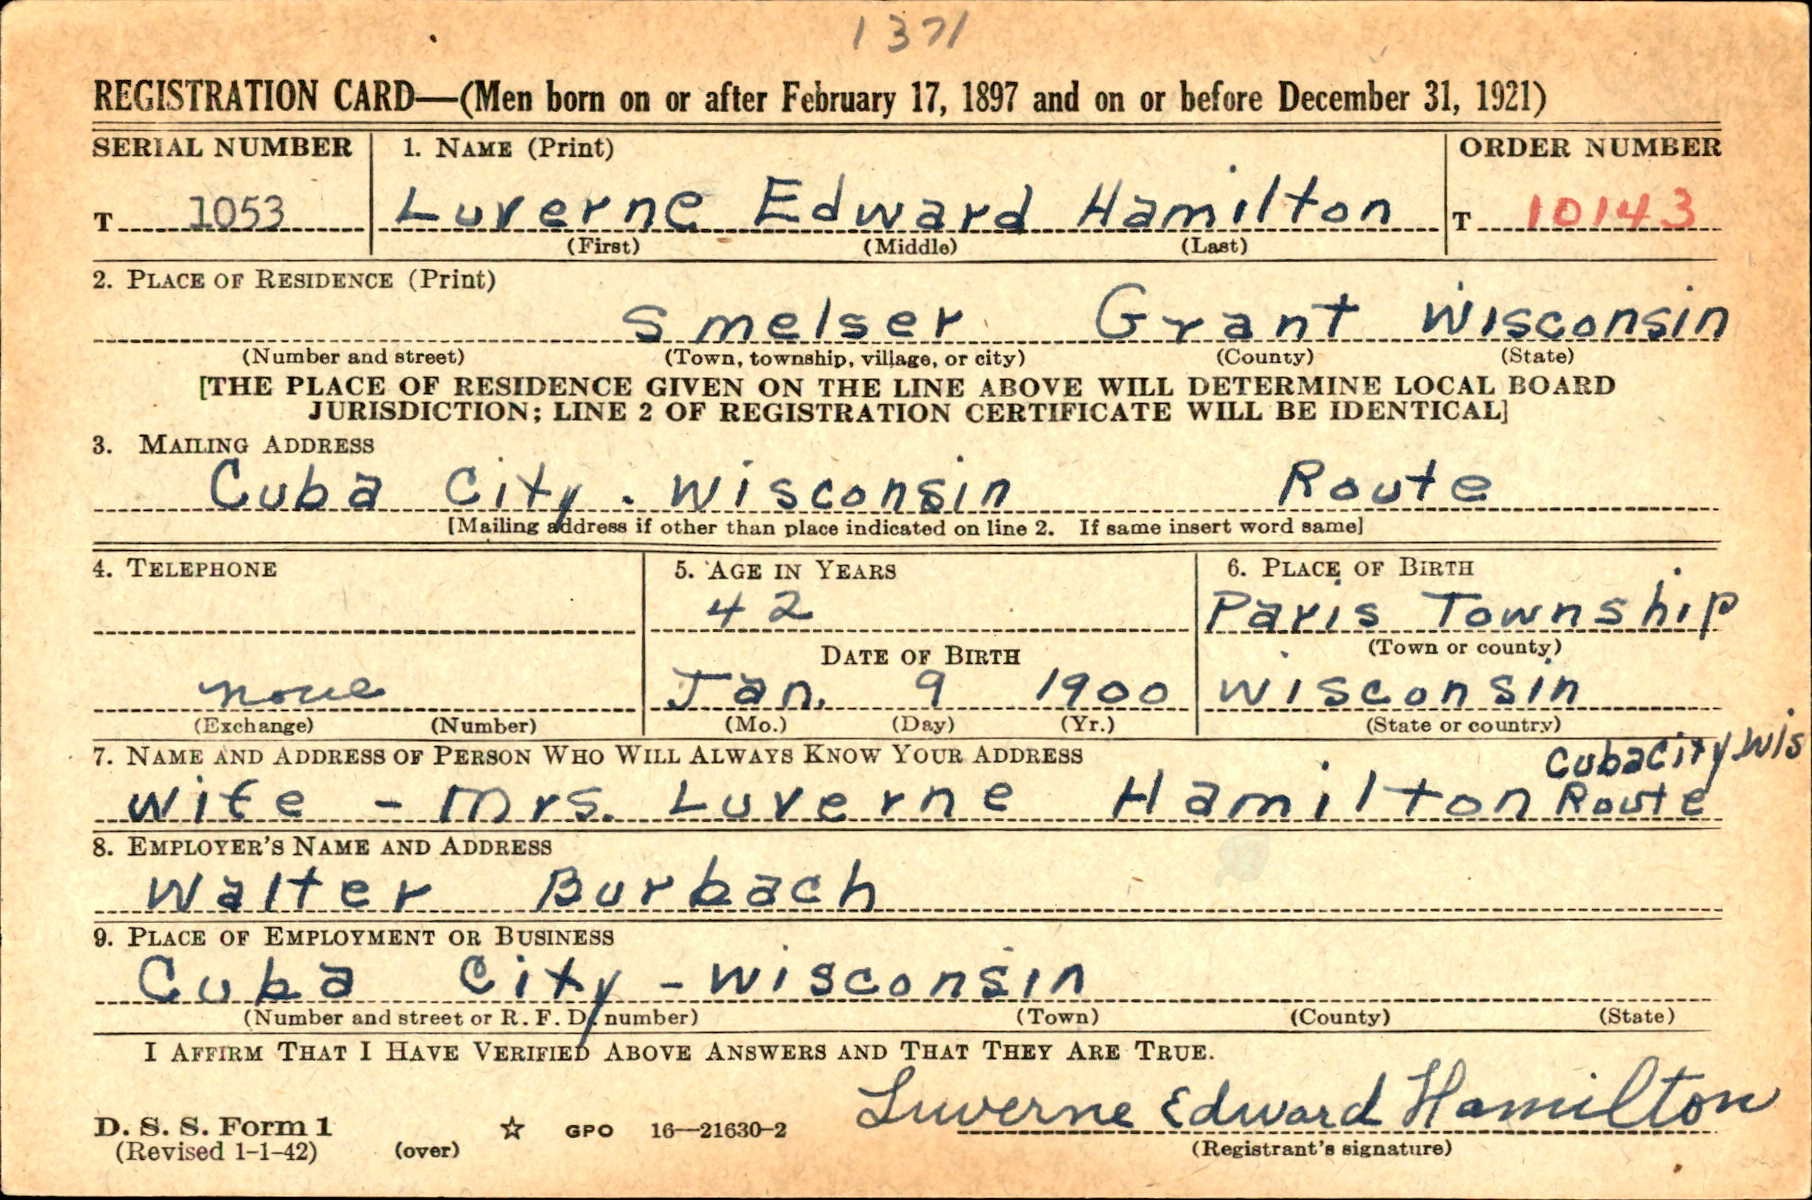 1371
REGISTRATION CARD—(Men born on or after February 17, 1897 and on or before December 31, 1921)
SERIAL NUMBER 1. NAME (Print) ORDER NUMBER
T 1053 Luverne Edward Hamilton T 10143
(First) (Middle) (Last)
2. PLACE OF RESIDENCE (Print)
Smelser Grant Wisconsin
(Number and street) (Town, township, village, or city) (County) (State)
[THE PLACE OF RESIDENCE GIVEN ON THE LINE ABOVE WILL DETERMINE LOCAL BOARD
JURISDICTION; LINE 2 OF REGISTRATION CERTIFICATE WILL BE IDENTICAL]
3. MAILING ADDRESS
Cuba City. Wisconsin Route
[Mailing address if other than place indicated on line 2. If same insert word same]
4. TELEPHONE 5. AGE IN YEARS 6. PLACE OF BIRTH
42 Paris Township
DATE OF BIRTH (Town or county)
none Jan. 9 1900 Wisconsin
(Exchange) (Number) (Mo.) (Day) (Yr.) (State or country)
7. NAME AND ADDRESS OF PERSON WHO WILL ALWAYS KNOW YOUR ADDRESS Cuba City Wis
Wife - Mrs. Luverne Hamilton Route
8. EMPLOYER'S NAME AND ADDRESS
Walter Burbach
9. PLACE OF EMPLOYMENT OR BUSINESS
Cuba City - Wisconsin
(Number and street or R. F. D. number) (Town) (County) (State)
I AFFIRM THAT I HAVE VERIFIED ABOVE ANSWERS AND THAT THEY ARE TRUE.
Luverne Edward Hamilton
D. S. S. Form 1 ☆ GPO 16—21630-2
(Revised 1-1-42) (over) (Registrant's signature)